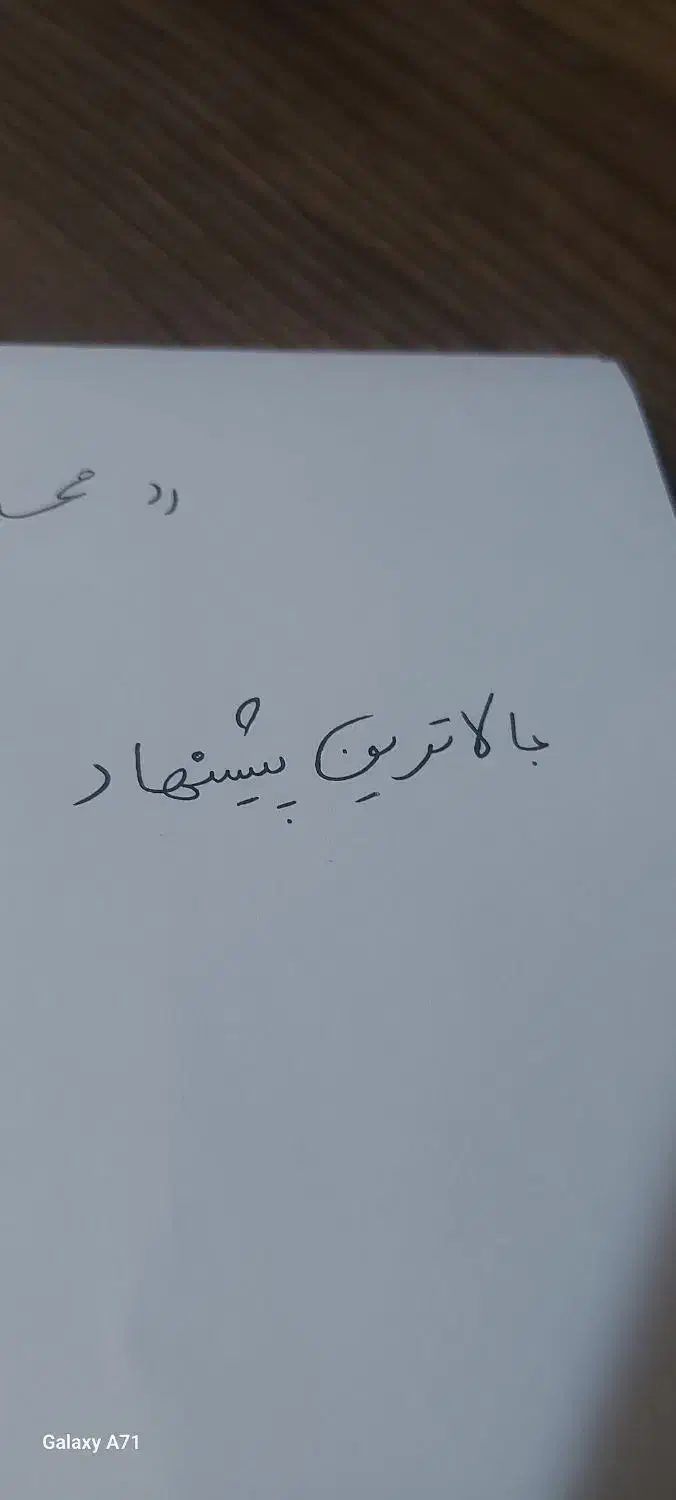 رد
بالاترین پیشنهاد
Galaxy A71